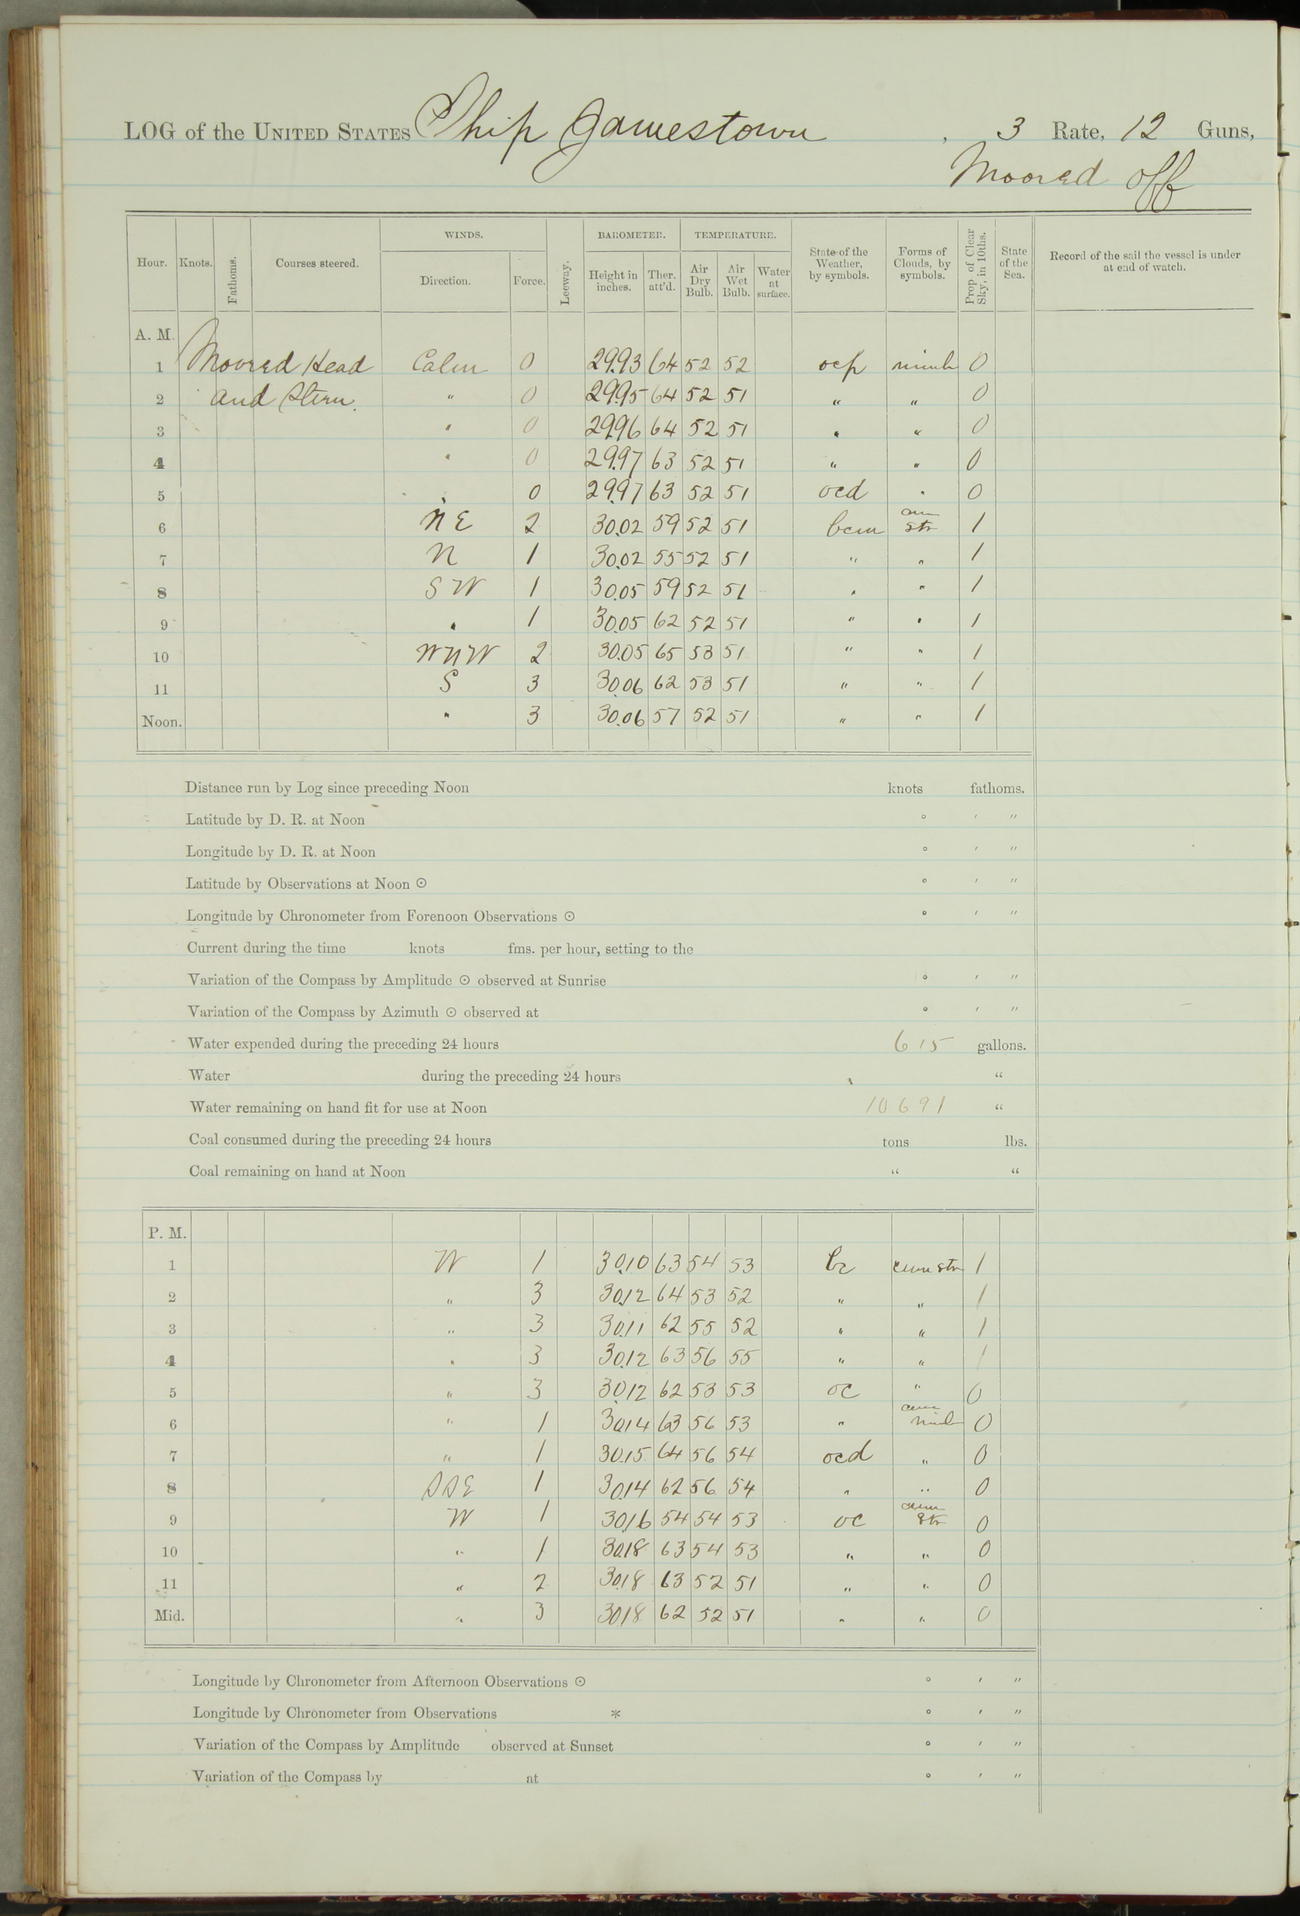 LOG of the UNITED STATES Ship Jamestown, 3 Rate, 12 Guns,
Moored off
Hour. Knots. Fathoms. Courses steered. WINDS. Direction. Force. Leeway. BAROMETER. Height in inches. Ther. att'd. TEMPERATURE. Air Dry Bulb. Air Wet Bulb. Water at surface. State of the Weather, by symbols. Forms of Clouds, by symbols. Prop. of Clear Sky, in 10ths. State of the Sea. Record of the sail the vessel is under at end of watch.
A. M.
1 Moored Head Calm 0 29.93 64 52 52 ocp nimb 0
2 and Stern. " 0 29.95 64 52 51 " " 0
3 " 0 29.96 64 52 51 " " 0
4 " 0 29.97 63 52 51 " " 0
5 " 0 29.97 63 52 51 ocd " 0
6 NE 2 30.02 59 52 51 bcm cum str 1
7 N 1 30.02 55 52 51 " " 1
8 SW 1 30.05 59 52 51 " " 1
9 " 1 30.05 62 52 51 " " 1
10 WNW 2 30.05 65 53 51 " " 1
11 S 3 30.06 62 53 51 " " 1
Noon. " 3 30.06 57 52 51 " " 1
Distance run by Log since preceding Noon knots fathoms.
Latitude by D. R. at Noon ° ′ ″
Longitude by D. R. at Noon ° ′ ″
Latitude by Observations at Noon ⊙ ° ′ ″
Longitude by Chronometer from Forenoon Observations ⊙ ° ′ ″
Current during the time knots fms. per hour, setting to the
Variation of the Compass by Amplitude ⊙ observed at Sunrise ° ′ ″
Variation of the Compass by Azimuth ⊙ observed at ° ′ ″
Water expended during the preceding 24 hours 615 gallons.
Water during the preceding 24 hours "
Water remaining on hand fit for use at Noon 10691 "
Coal consumed during the preceding 24 hours tons lbs.
Coal remaining on hand at Noon " "
P. M.
1 W 1 30.10 63 54 53 bc cum str 1
2 " 3 30.12 64 53 52 " " 1
3 " 3 30.11 62 55 52 " " 1
4 " 3 30.12 63 56 55 " " 1
5 " 3 30.12 62 53 53 oc " 0
6 " 1 30.14 63 56 53 " cum nimb 0
7 " 1 30.15 64 56 54 ocd " 0
8 SSE 1 30.14 62 56 54 " " 0
9 W 1 30.16 54 54 53 oc cum str 0
10 " 1 30.18 63 54 53 " " 0
11 " 2 30.18 63 52 51 " " 0
Mid. " 3 30.18 62 52 51 " " 0
Longitude by Chronometer from Afternoon Observations ⊙ ° ′ ″
Longitude by Chronometer from Observations * ° ′ ″
Variation of the Compass by Amplitude observed at Sunset ° ′ ″
Variation of the Compass by at ° ′ ″